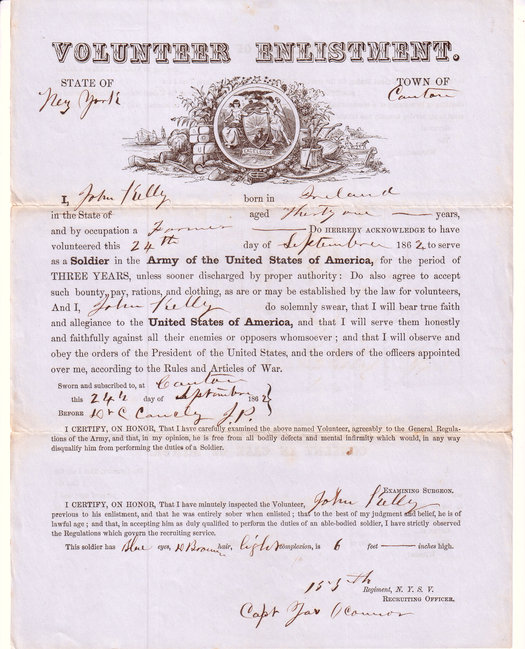 VOLUNTEER ENLISTMENT.
STATE OF TOWN OF
New York Canton
EXCELSIOR
I, John Kelly born in Ireland
in the State of aged Thirty one years,
and by occupation a Farmer Do HEREBY ACKNOWLEDGE to have
volunteered this 24th day of September 1862 to serve
as a Soldier in the Army of the United States of America, for the period of
THREE YEARS, unless sooner discharged by proper authority: Do also agree to accept
such bounty, pay, rations, and clothing, as are or may be established by the law for volunteers,
And I, John Kelly do solemnly swear, that I will bear true faith
and allegiance to the United States of America, and that I will serve them honestly
and faithfully against all their enemies or opposers whomsoever; and that I will observe and
obey the orders of the President of the United States, and the orders of the officers appointed
over me, according to the Rules and Articles of War.
Sworn and subscribed to, at Canton
this 24th day of September 1862
BEFORE J.P.
I CERTIFY, ON HONOR, That I have carefully examined the above named Volunteer, agreeably to the General Regula-
tions of the Army, and that, in my opinion, he is free from all bodily defects and mental infirmity which would, in any way
disqualify him from performing the duties of a Soldier.
EXAMINING SURGEON.
I CERTIFY, ON HONOR, That I have minutely inspected the Volunteer, John Kelly
previous to his enlistment, and that he was entirely sober when enlisted; that to the best of my judgment and belief, he is of
lawful age; and that, in accepting him as duly qualified to perform the duties of an able-bodied soldier, I have strictly observed
the Regulations which govern the recruiting service.
This soldier has Blue eyes, D Brown hair, light complexion, is 6 feet inches high.
155th
Regiment, N. Y. S. V.
RECRUITING OFFICER.
Capt Jas O'Connor